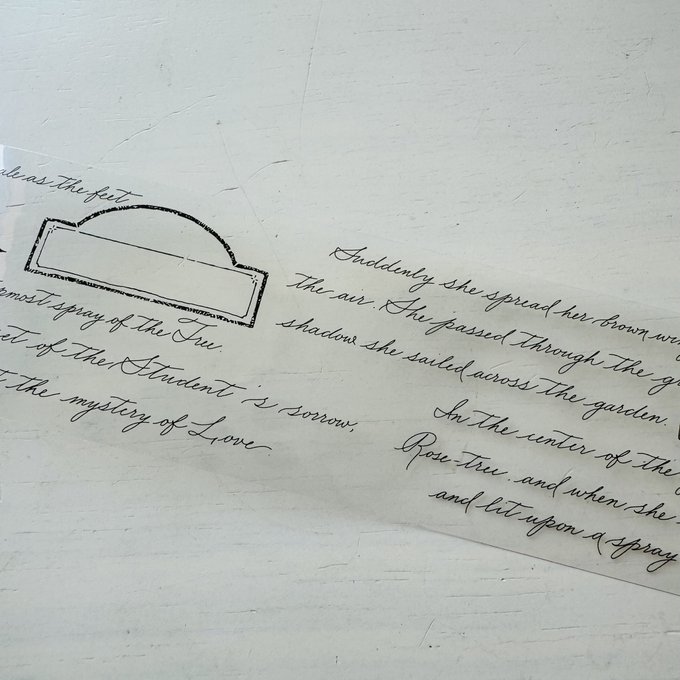 ale as the feet
most spray of the Tree.
of the Student is sorrow,
the mystery of Love
Suddenly she spread her brown
the air. She passed through the
shadow she sailed across the garden.
In the center of the
Rose-tree, and when she
and lit upon a spray